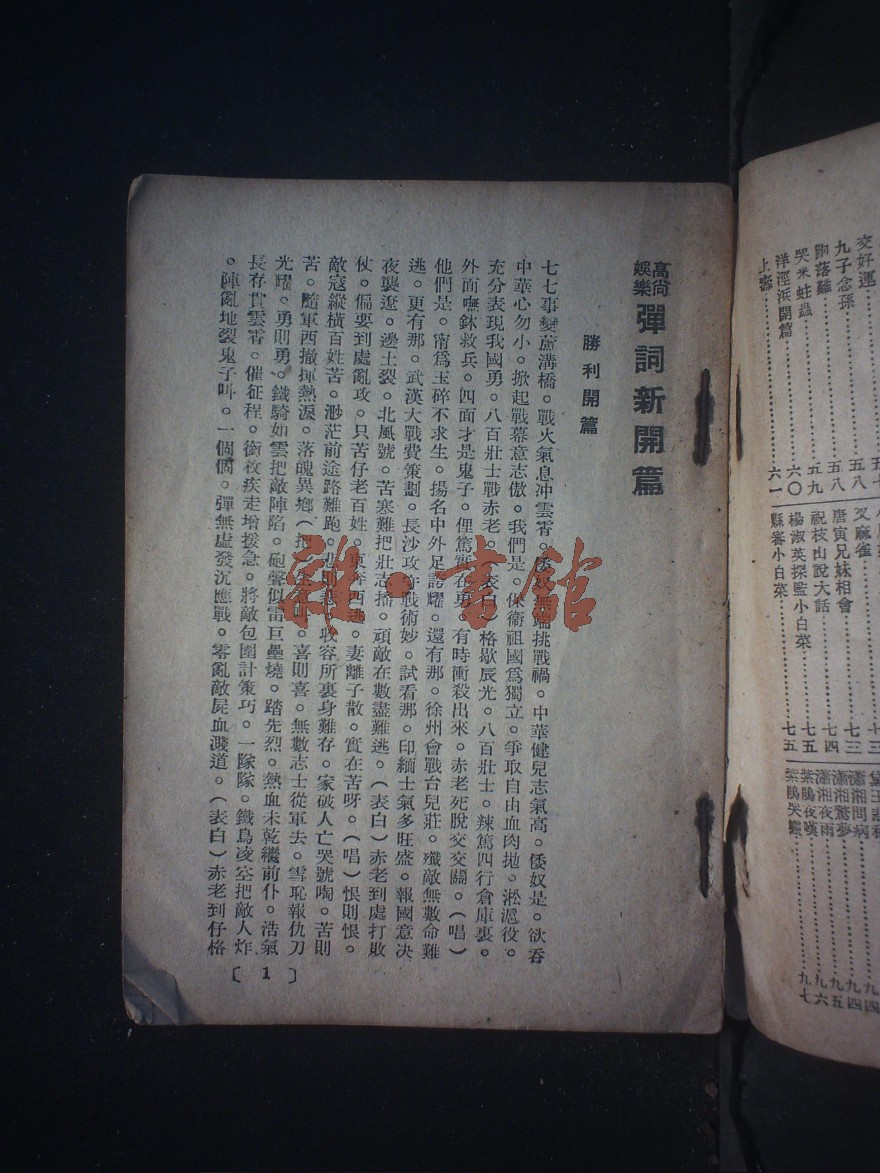 高尚娛樂 彈詞新開篇
勝利開篇
七七事變蘆溝橋。戰火氣息沖雲霄。倭奴無端挑戰禍。中華健兒志氣高。倭奴是。欲吞
中華心勿小。掀起戰幕意志傲。我們是。保衛祖國爲獨立。爭取自由血肉拋。淞滬役。
充分表現我國勇。八百壯士戰赤老。(表白)格歇辰光。八百壯士。辣篤四行倉庫裏。
外面嘸鉢救兵。四面才是鬼子。俚篤實在勇。有時衝殺出來。赤老死脫交交關。(唱)
他們是。甯爲玉碎不求生。揚名中外足誇耀。還有那。徐州會戰台兒莊。殲敵無數命難
逃。更有那。武漢大戰費策劃。長沙攻戰術妙。試看那。印緬士氣多旺盛。報國意决
夜襲遼。邊土裂。北風號。苦寒難把壯志搖。頑敵在數盡難逃。(表白)赤老到處打敗
仗。偏要到處亂攻。只苦仔老百姓。東奔西逃。妻離子散。實在苦呀。(唱)恨則恨。
敵寇縱橫百姓苦。渺茫前途路難跑。悲則悲。收容所裏身難存。家破人亡哭號啕。苦則
苦。隨軍西撤揮熱淚。落魄異鄉(把)生意。喜則喜。無數志士從軍去。雪恥報仇刀
光耀。勇則勇。鐵騎如雲把敵陣陷。砲聲似雷巨壘燒。踏先烈。熱血未乾繼前仆。浩氣
長存貫雲霄。催征程。銜枚疾走增援急。將敵包圍計策巧。一隊隊。鐵鳥凌空把敵人炸
。陣亂地裂鬼子叫。一個個。彈無虛發沉應戰。零亂敵屍血濺道。(表白)赤老到仔格
〔1〕
交好運
九子念孫 五八
跑落難 五八
哭米蛀蟲 五九
洋涇浜開篇 六〇
上壽 六一
叉麻雀 七三
唐寅兄妹相會 七三
祝枝山說大話 七四
楊淑英探監小白菜 七五
縣審小白菜 七五
瀟湘問病 九四
瀟湘驚夢 九四
瀟湘夜雨 九五
紫鵑夜嘆 九六
紫鵑哭靈 九七
雜·書館